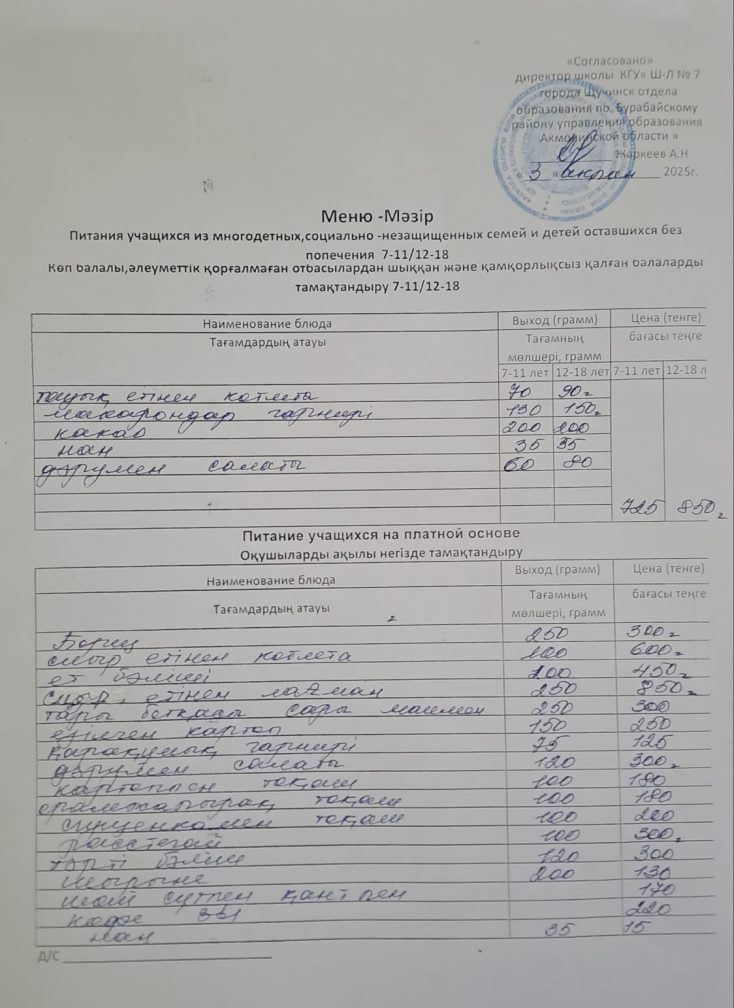 «Согласовано»
директор школы КГУ« Ш-Л № 7
города Щучинск отдела
образования по Бурабайскому
району управления образования
Акмолинской области »
Жаркеев А.Н
« 3 » ақпан 2025г.
Меню -Мәзір
Питания учащихся из многодетных,социально -незащищенных семей и детей оставшихся без
попечения 7-11/12-18
Көп балалы,әлеуметтік қорғалмаған отбасылардан шыққан және қамқорлықсыз қалған балаларды
тамақтандыру 7-11/12-18
Наименование блюда Выход (грамм) Цена (тенге)
Тағамдардың атауы Тағамның бағасы теңге
мөлшері, грамм
7-11 лет 12-18 лет 7-11 лет 12-18 л
тауық етінен котлета 70 90г
макарондар гарнирі 130 150г
какао 200 200
нан 35 35
дәрумен салаты 60 80
725 850г
Питание учащихся на платной основе
Оқушыларды ақылы негізде тамақтандыру
Наименование блюда Выход (грамм) Цена (тенге)
Тағамдардың атауы Тағамның бағасы теңге
мөлшері, грамм
Борщ 250 300г
сиыр етінен котлета 100 600г
ет бәліші 100 450г
сиыр етінен лағман 250 850г
тары ботқасы сары маймен 250 300
езілген картоп 150 250
қарақұмық гарнирі 75 125
дәрумен салаты 120 300г
картоппен тоқаш 100 180
орамжапырақ тоқаш 100 180
сгущенкамен тоқаш 100 200
расстегай 100 300г
бәліш 120 300
шырыне 200 130
шай сүтпен қантпен 170
кофе 3в1 220
нан 35 15
Д/С